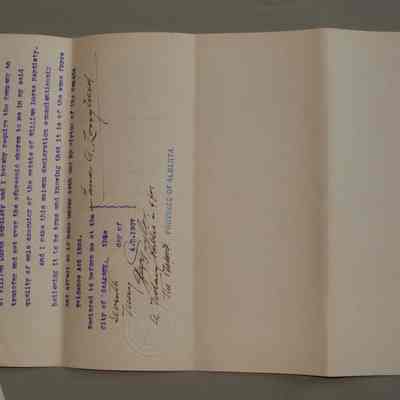 of William Lucas Hardisty and I hereby require the Company to
transfer and set over the aforesaid shares to me in my said
quality of sole executor of the estate of William Lucas Hardisty.
and I make this solemn declaration conscientiously
believing it to be true and knowing that it is of the same force
and effect as if made under oath and by virtue of the Canada
Evidence Act 1893.
Declared before me at the
City of Calgary, this
Seventh day of
A.D. 1907
A Notary Public in & for
the
PROVINCE OF ALBERTA